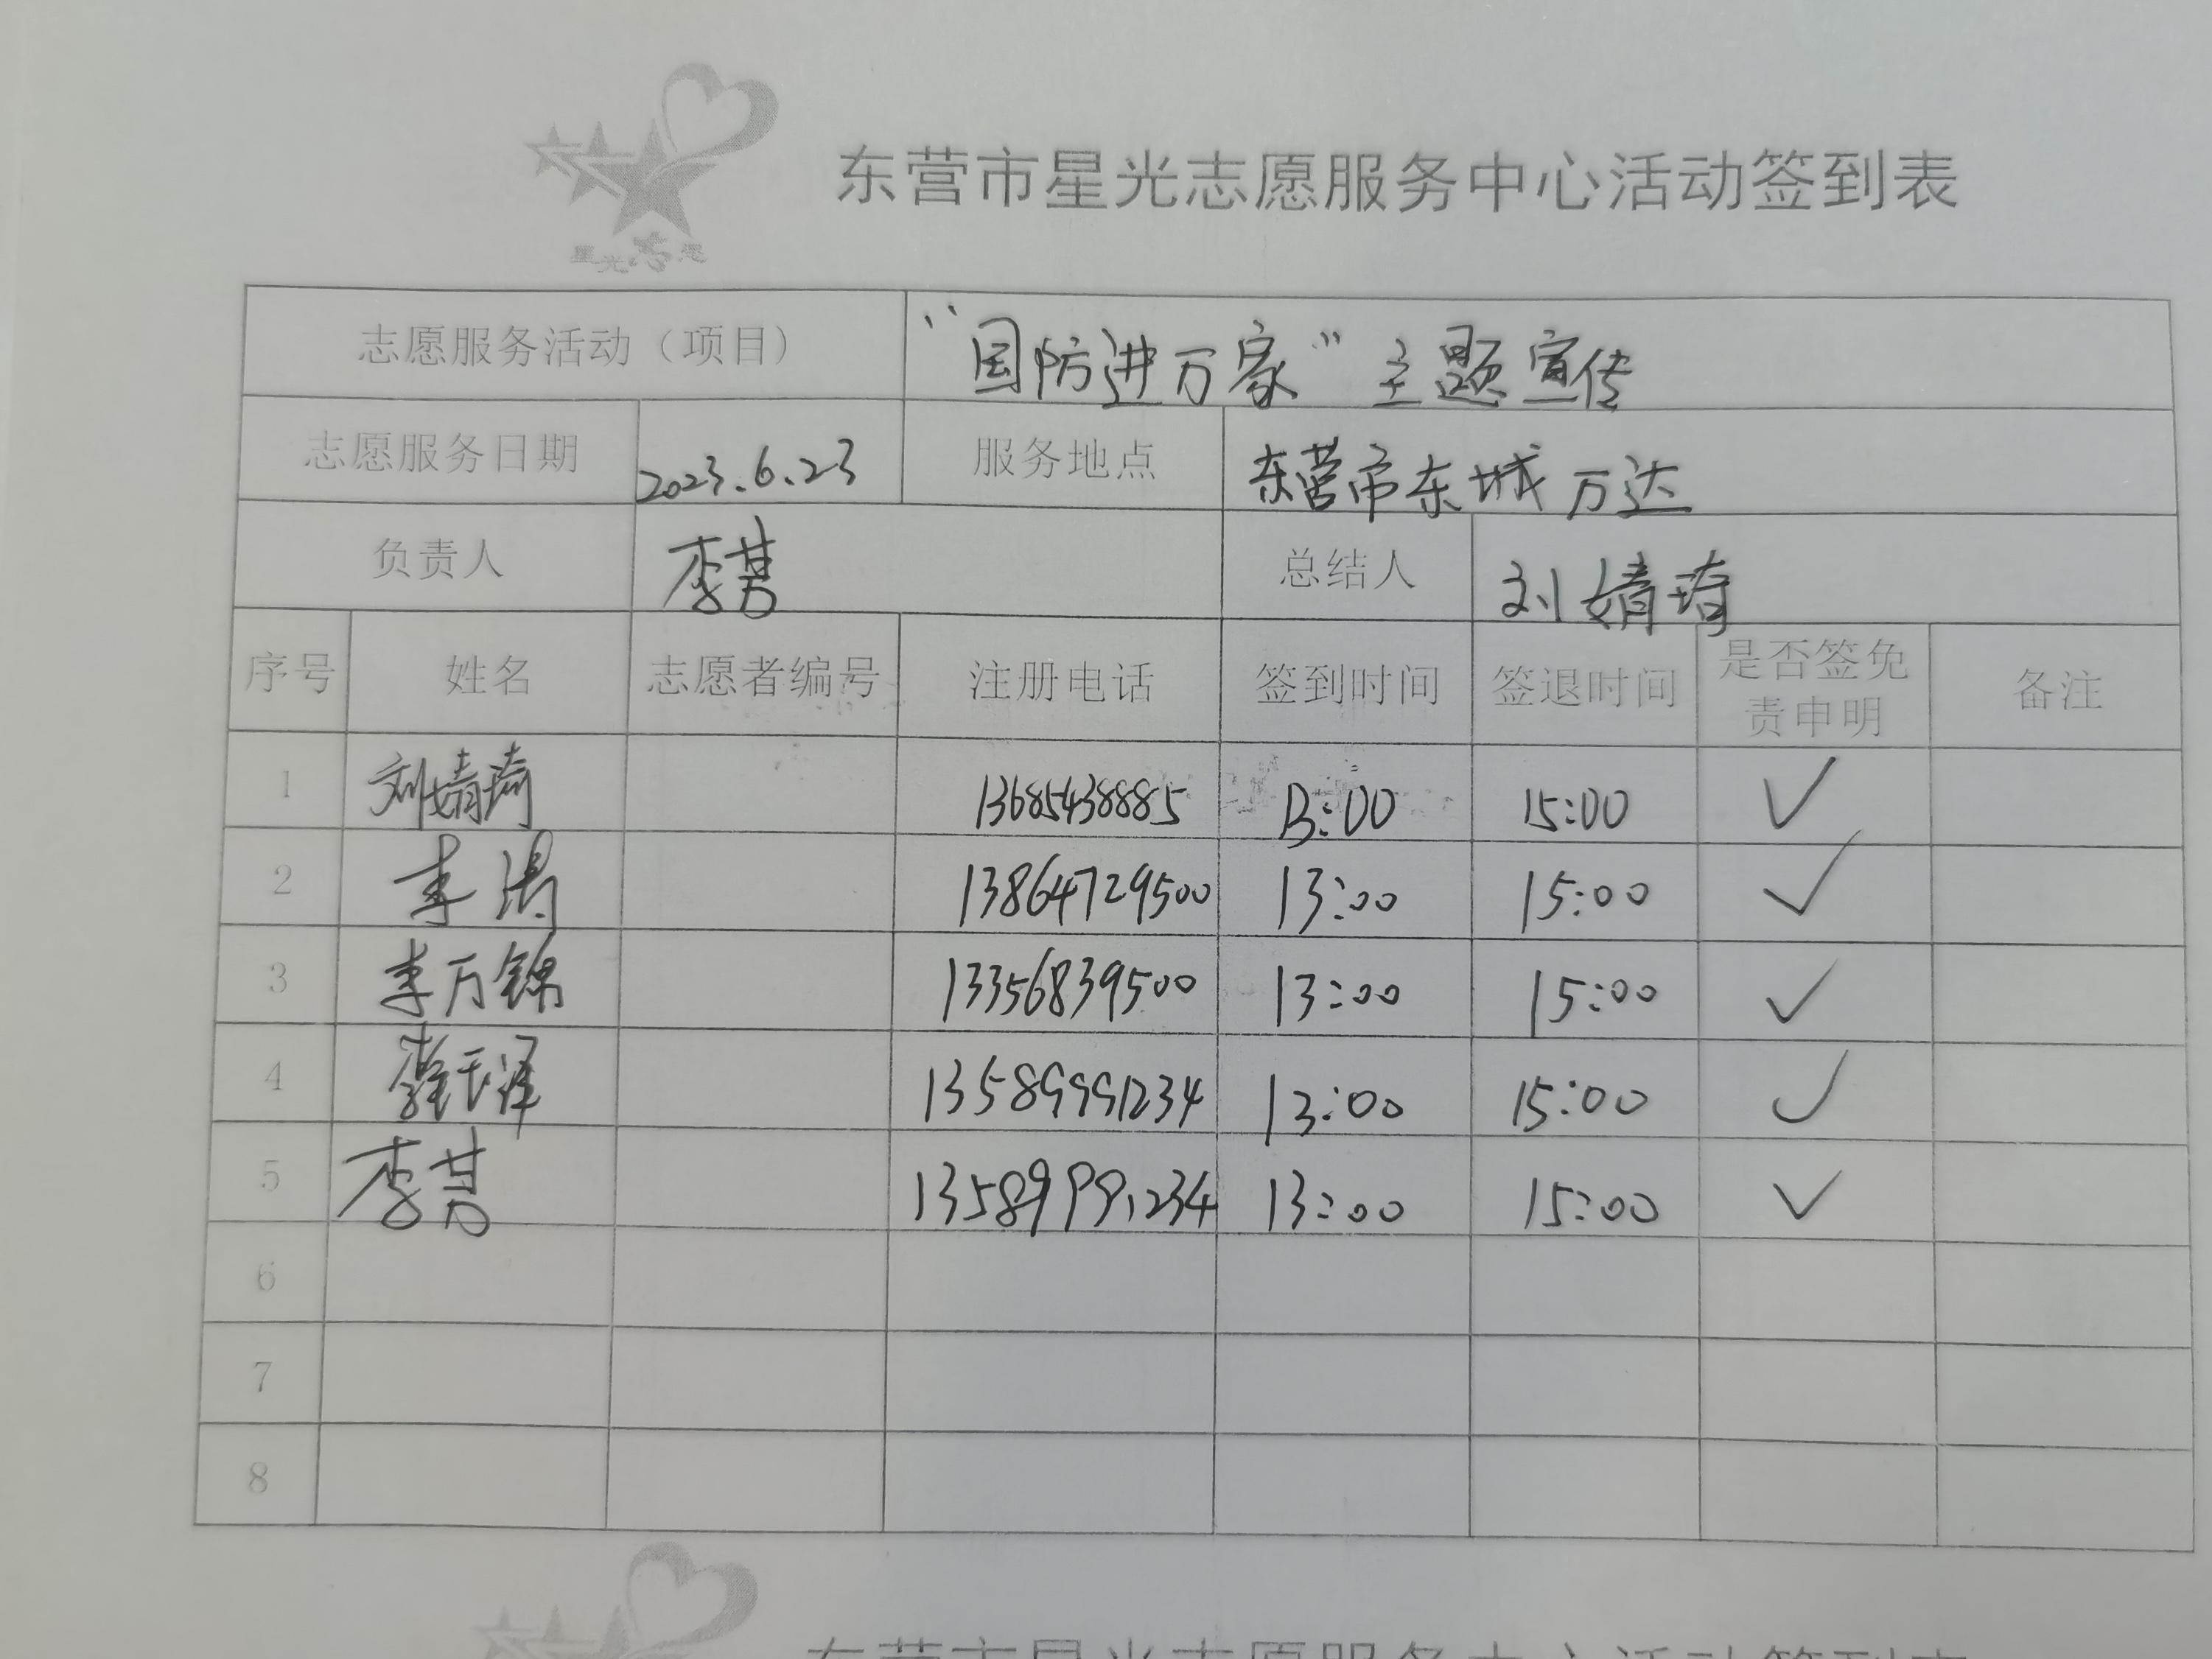 星光志愿
东营市星光志愿服务中心活动签到表
志愿服务活动（项目） “国防进万家”主题宣传
志愿服务日期 2023.6.23 服务地点 东营市东城万达
负责人 李 总结人 刘婧琦
序号 姓名 志愿者编号 注册电话 签到时间 签退时间 是否签免责申明 备注
1 刘婧琦 13685438885 13:00 15:00 ✓
2 李 13864729500 13:00 15:00 ✓
3 李万锦 13356839500 13:00 15:00 ✓
4 13589991234 13:00 15:00 ✓
5 李 13589991234 13:00 15:00 ✓
6
7
8
东营市星光志愿服务中心活动签到表